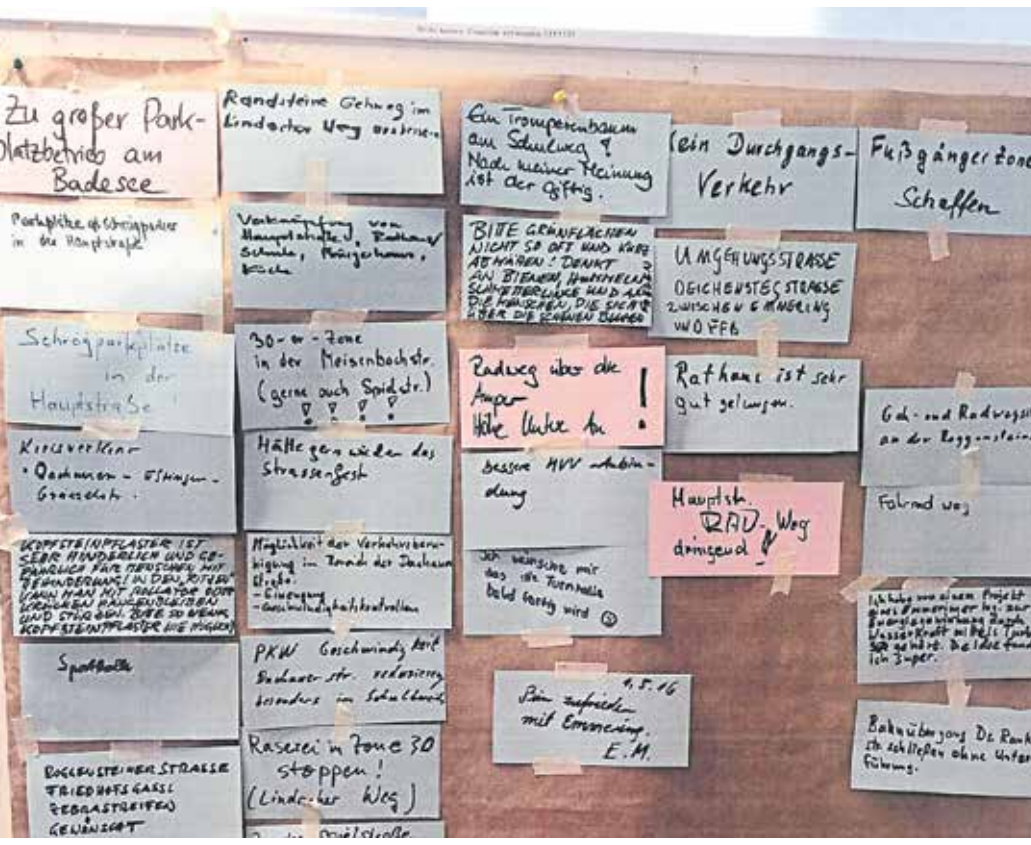 Zu großer Park-
platzbetrieb am
Badesee
Parkplätze als Schrägparker
in der Hauptstraße
Schrägparkplätze
in der
Hauptstraße !
Kreisverkehr
Dachauer - Estinger -
KOPFSTEINPFLASTER IST
SEHR HINDERLICH UND GE-
FÄHRLICH FÜR MENSCHEN MIT
BEHINDERUNG! IN DEN RITZEN
KANN MAN MIT ROLLATOR ODER
KRÜCKEN HÄNGENBLEIBEN
UND STÜRZEN. BITTE SO WENIG
KOPFSTEINPFLASTER WIE MÖGLICH
Sporthalle
ROGGENSTEINER STRASSE
FRIEDHOFSGASSL
ZEBRASTREIFEN
GEWÜNSCHT
Randsteine Gehweg im
Lindacher Weg
Verknüpfung von
Hauptstraße, Rathaus/
Schule, Bürgerhaus,
Kirche
30-er-Zone
in der Meisenbachstr.
(gerne auch Spielstr.)
! ! ! !
Hätte gern wieder das
Strassenfest
Möglichkeit der Verkehrsberu-
higung im Bereich der Dachauer
Straße:
- Einengung
- Geschwindigkeitskontrollen
PKW Geschwindigkeit
Dachauer Str. reduzieren
besonders im Schulbereich
Raserei in Zone 30
stoppen!
(Lindacher Weg)
Ein Trompetenbaum
am Schulweg ?
Nach meiner Meinung
ist der giftig.
BITTE GRÜNFLÄCHEN
NICHT SO OFT UND KURZ
ABMÄHEN! DENKT
AN BIENEN, HUMMELN,
SCHMETTERLINGE UND AN
DIE MENSCHEN, DIE SICH
ÜBER DIE SCHÖNEN BLUMEN
Radweg über die
Amper
Höhe Untere Au !
bessere MVV-Anbin-
dung
Ich wünsche mir
das die Turnhalle
bald fertig wird ☺
1.5.16
Bin zufrieden
mit Emmering.
E.M.
Kein Durchgangs-
Verkehr
UMGEHUNGSSTRASSE
ZWISCHEN EMMERING
UND FFB
Rathaus ist sehr
gut gelungen.
Hauptstr.
RAD-Weg
dringend !
Fußgängerzone
Schaffen
Geh- und Radweg
an der Roggenstein
Fahrrad weg
Ich habe von einem Projekt
eines Emmeringer Ing. zur
Energiegewinnung durch
Wasserkraft mittels
gehört. Die Idee
ich super.
Bahnübergang
str. schließen ohne Unter
führung.